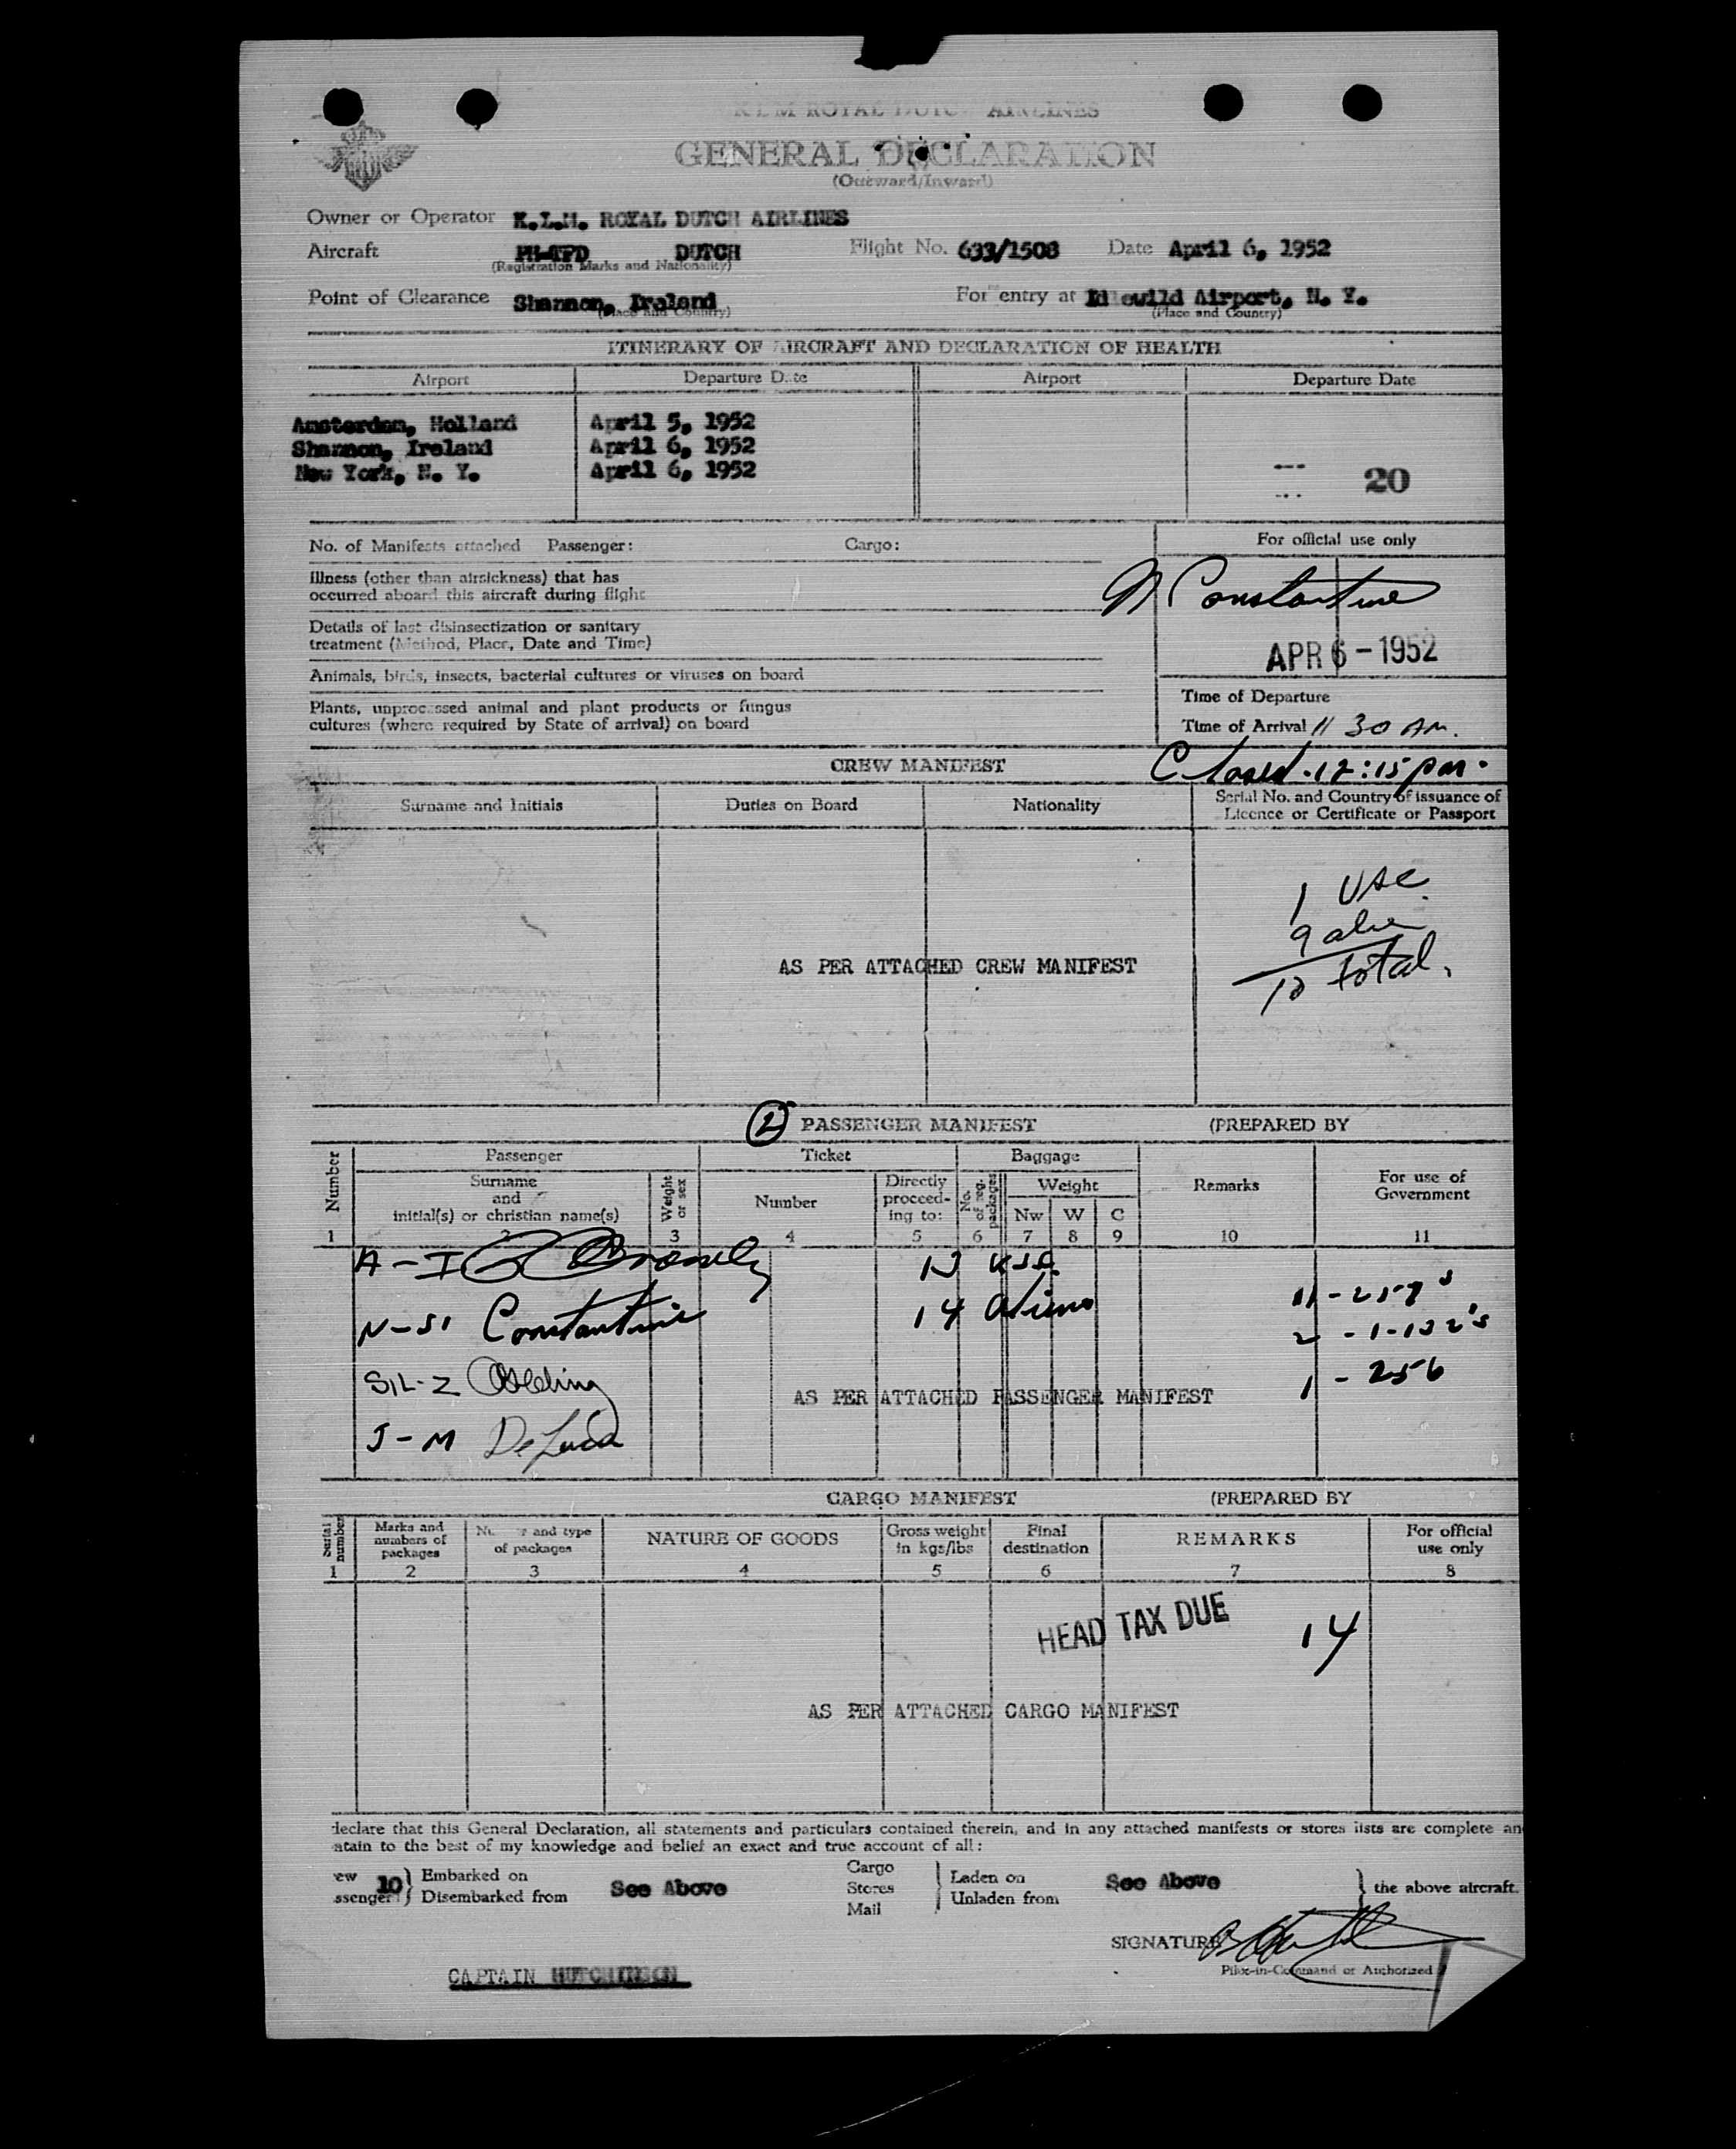 K L M ROYAL DUTC AIRLINES
GENERAL DECLARATION
(Outward/Inward)
Owner or Operator K.L.M. ROYAL DUTCH AIRLINES
Aircraft PH-TFD DUTCH Flight No. 633/1508 Date April 6, 1952
(Registration Marks and Nationality)
Point of Clearance Shannon, Ireland For entry at Idlewild Airport, N. Y.
(Place and Country) (Place and Country)
ITINERARY OF AIRCRAFT AND DECLARATION OF HEALTH
Airport Departure Date Airport Departure Date
Amsterdam, Holland April 5, 1952
Shannon, Ireland April 6, 1952
New York, N. Y. April 6, 1952
20
No. of Manifests attached Passenger: Cargo: For official use only
Illness (other than airsickness) that has
occurred aboard this aircraft during flight
N Constantine
Details of last disinsectization or sanitary
treatment (Method, Place, Date and Time)
APR 6 - 1952
Animals, birds, insects, bacterial cultures or viruses on board
Time of Departure
Plants, unprocessed animal and plant products or fungus
cultures (where required by State of arrival) on board
Time of Arrival 11 30 AM.
CREW MANIFEST Closed. 12:15 pm.
Surname and Initials Duties on Board Nationality Serial No. and Country of issuance of
Licence or Certificate or Passport
1 USC
9 alien
10 total.
AS PER ATTACHED CREW MANIFEST
2 PASSENGER MANIFEST (PREPARED BY
Number Passenger Ticket Baggage
Surname
and
initial(s) or christian name(s) Weight or sex Number Directly
proceed-
ing to: No. of reg. packages Weight Remarks For use of
Government
Nw W C
1 2 3 4 5 6 7 8 9 10 11
A - I 13 USC.
N - SI Constantine 14 Aliens
11 - 257's
2 - 1-132's
SIL-Z 1 - 256
AS PER ATTACHED PASSENGER MANIFEST
J - M DeLuca
CARGO MANIFEST (PREPARED BY
Serial number Marks and
numbers of
packages and type
of packages NATURE OF GOODS Gross weight
in kgs/lbs Final
destination REMARKS For official
use only
1 2 3 4 5 6 7 8
HEAD TAX DUE 14
AS PER ATTACHED CARGO MANIFEST
declare that this General Declaration, all statements and particulars contained therein, and in any attached manifests or stores lists are complete an
atain to the best of my knowledge and belief an exact and true account of all:
ew 10 Embarked on See Above Cargo Laden on See Above
ssenger Disembarked from Stores Unladen from the above aircraft.
Mail
SIGNATURE
Pilot-in-Command or Authorized
CAPTAIN HUTCHINSON